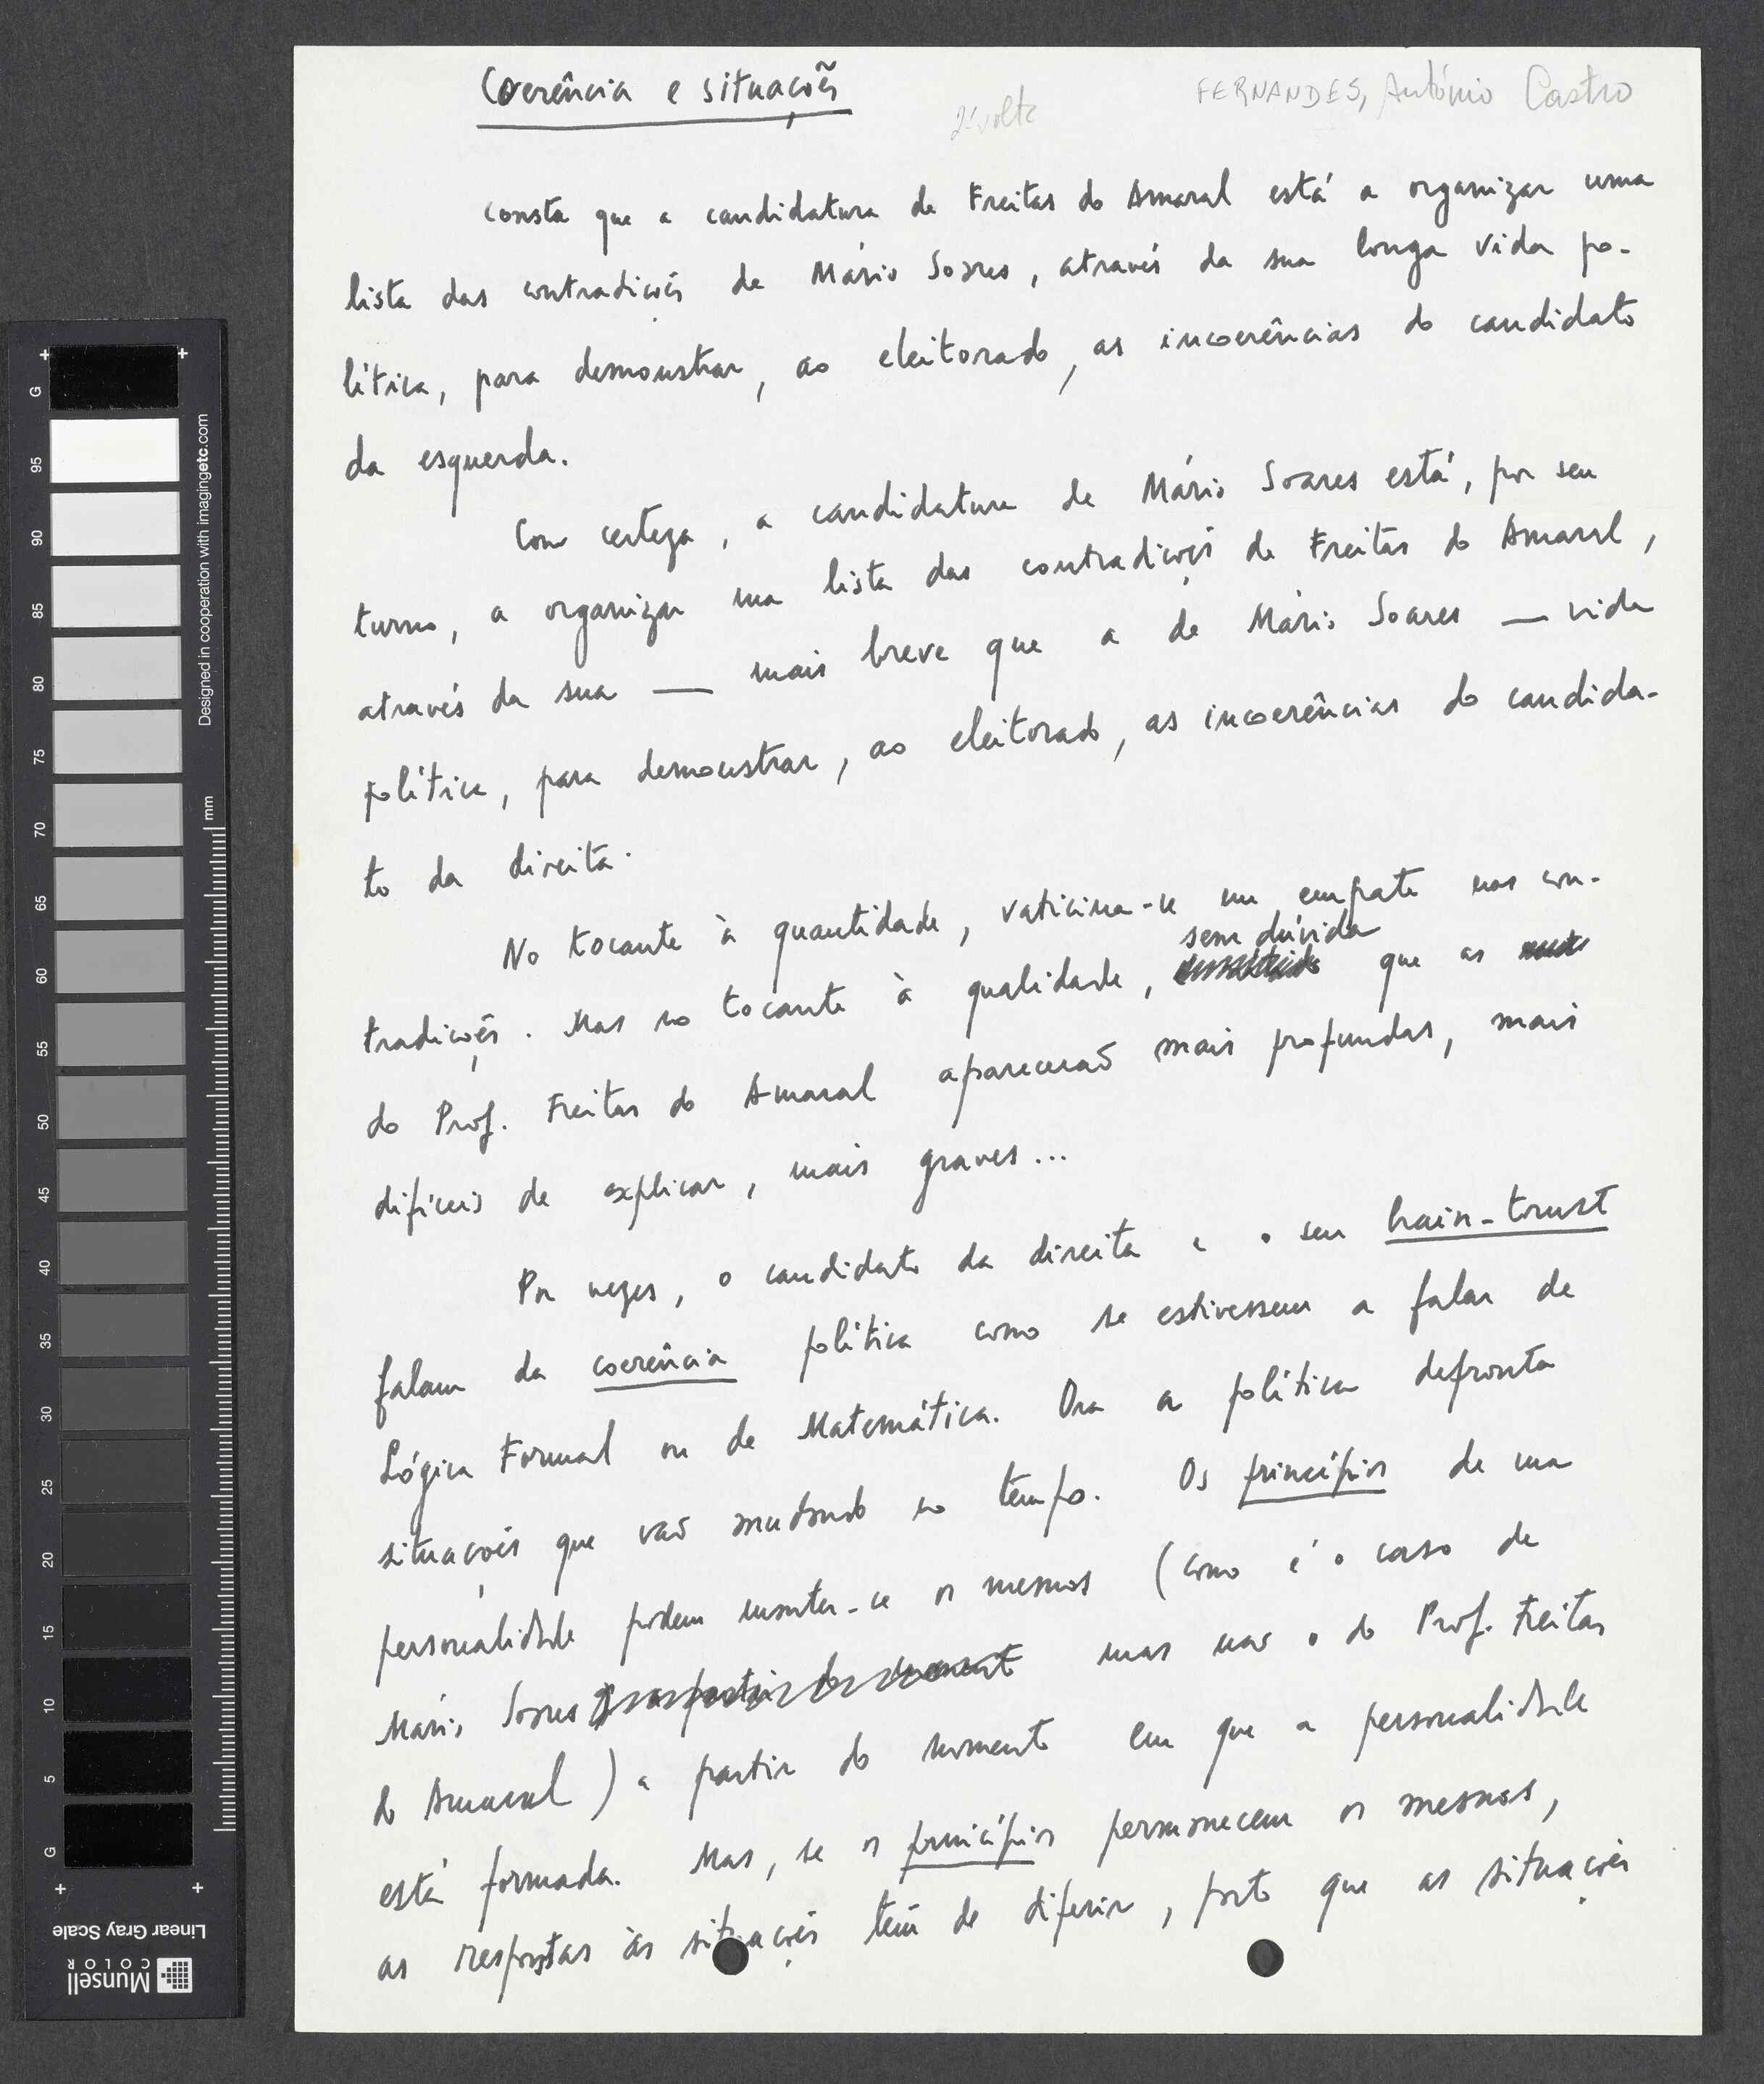 Coerência e situações
2ª volta
FERNANDES, António Castro
Consta que a candidatura de Freitas do Amaral está a organizar uma
lista das contradições de Mário Soares, através da sua longa vida po-
lítica, para demonstrar, ao eleitorado, as incoerências do candidato
da esquerda.
Com certeza, a candidatura de Mário Soares está, por seu
turno, a organizar uma lista das contradições de Freitas do Amaral,
através da sua — mais breve que a de Mário Soares — vida
política, para demonstrar, ao eleitorado, as incoerências do candida-
to da direita.
No tocante à quantidade, vaticina-se um empate nas con-
sem dúvida
tradições. Mas no tocante à qualidade, que as
do Prof. Freitas do Amaral aparecerão mais profundas, mais
difíceis de explicar, mais graves...
Por vezes, o candidato da direita e o seu brain-trust
falam da coerência política como se estivessem a falar de
Lógica Formal ou de Matemática. Ora a política defronta
situações que vão mudando no tempo. Os princípios de uma
personalidade podem manter-se os mesmos (como é o caso de
Mário Soares mas não o do Prof. Freitas
do Amaral) a partir do momento em que a personalidade
está formada. Mas, se os princípios permanecem os mesmos,
as respostas às situações têm de diferir, posto que as situações
G 95 90 85 80 75 70 65 60 55 50 45 40 35 30 25 20 15 10 5 G
Designed in cooperation with imagingetc.com
mm
Linear Gray Scale
Munsell
COLOR